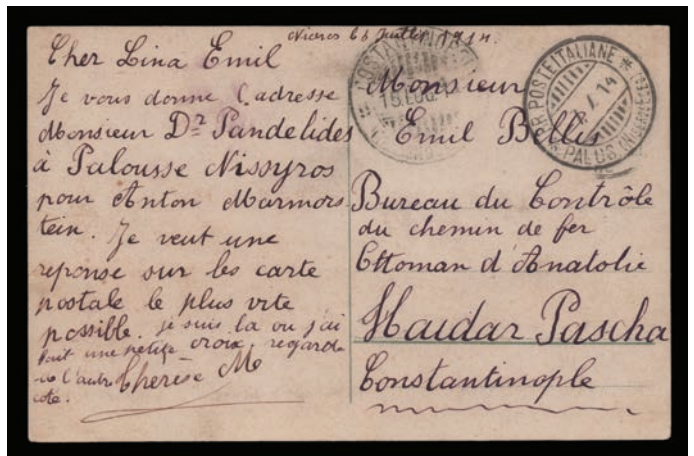 Juillet 1914.
Cher Lina Emil
Je vous donne l'adresse
Monsieur Dr Pandelides
à Palousse Nissyros
pour Anton Marmors
tein. Je veut une
reponse sur les carte
postale le plus vite
possible. je suis la ou j'ai
fait une petite croix, regarde
de l'autre Therese M
coté.
COSTANTINOPOLI
15 LUG. 1
R. POSTE ITALIANE
PALOS
14
Monsieur
Emil Bellis
Bureau du Contrôle
du chemin de fer
Ottoman d'Anatolie
Haidar Pascha
Constantinople